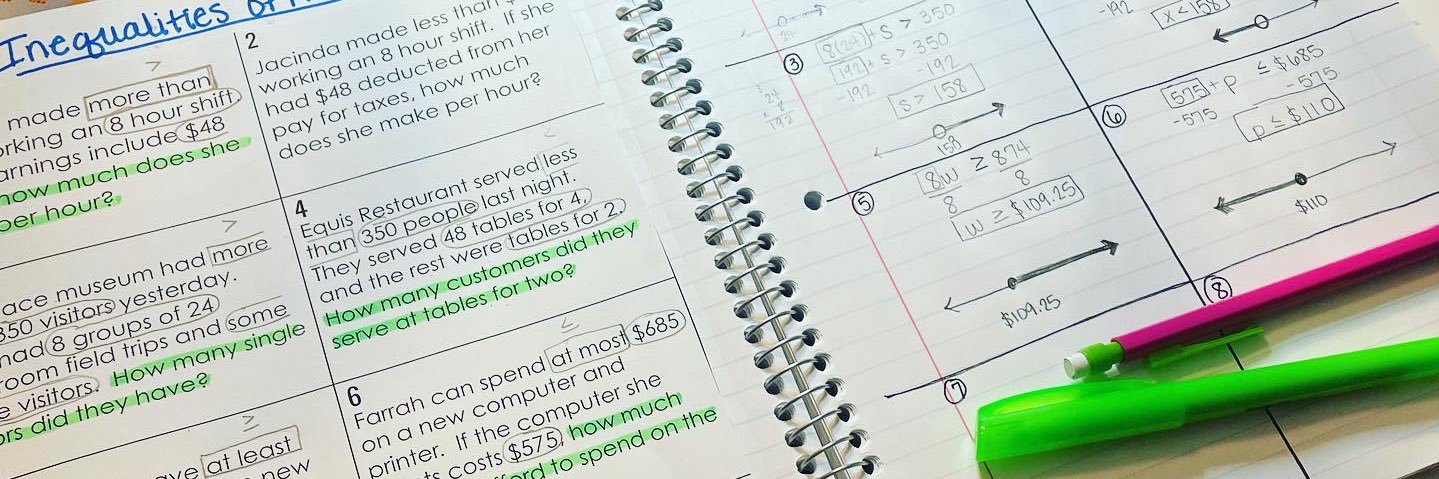 Inequalities of
>
made more than
working an 8 hour shift
earnings include $48
how much does she
per hour?
2
Jacinda made less than
working an 8 hour shift. If she
had $48 deducted from her
pay for taxes, how much
does she make per hour?
>
museum had more
350 visitors yesterday.
had 8 groups of 24
field trips and some
visitors. How many single
did they have?
4
<
Equis Restaurant served less
than 350 people last night.
They served 48 tables for 4,
and the rest were tables for 2.
How many customers did they
serve at tables for two?
≥
at least
new
6
≤
Farrah can spend at most $685
on a new computer and
printer. If the computer she
costs $575, how much
to spend on the
3
8(24) + s > 350
192 + s > 350
-192 -192
s > 158
158
24
192
-192
x < 158
5
8w ≥ 874
8 8
w ≥ $109.25
$109.25
6
575 + p ≤ $685
-575 -575
p ≤ $110
$110
7
8